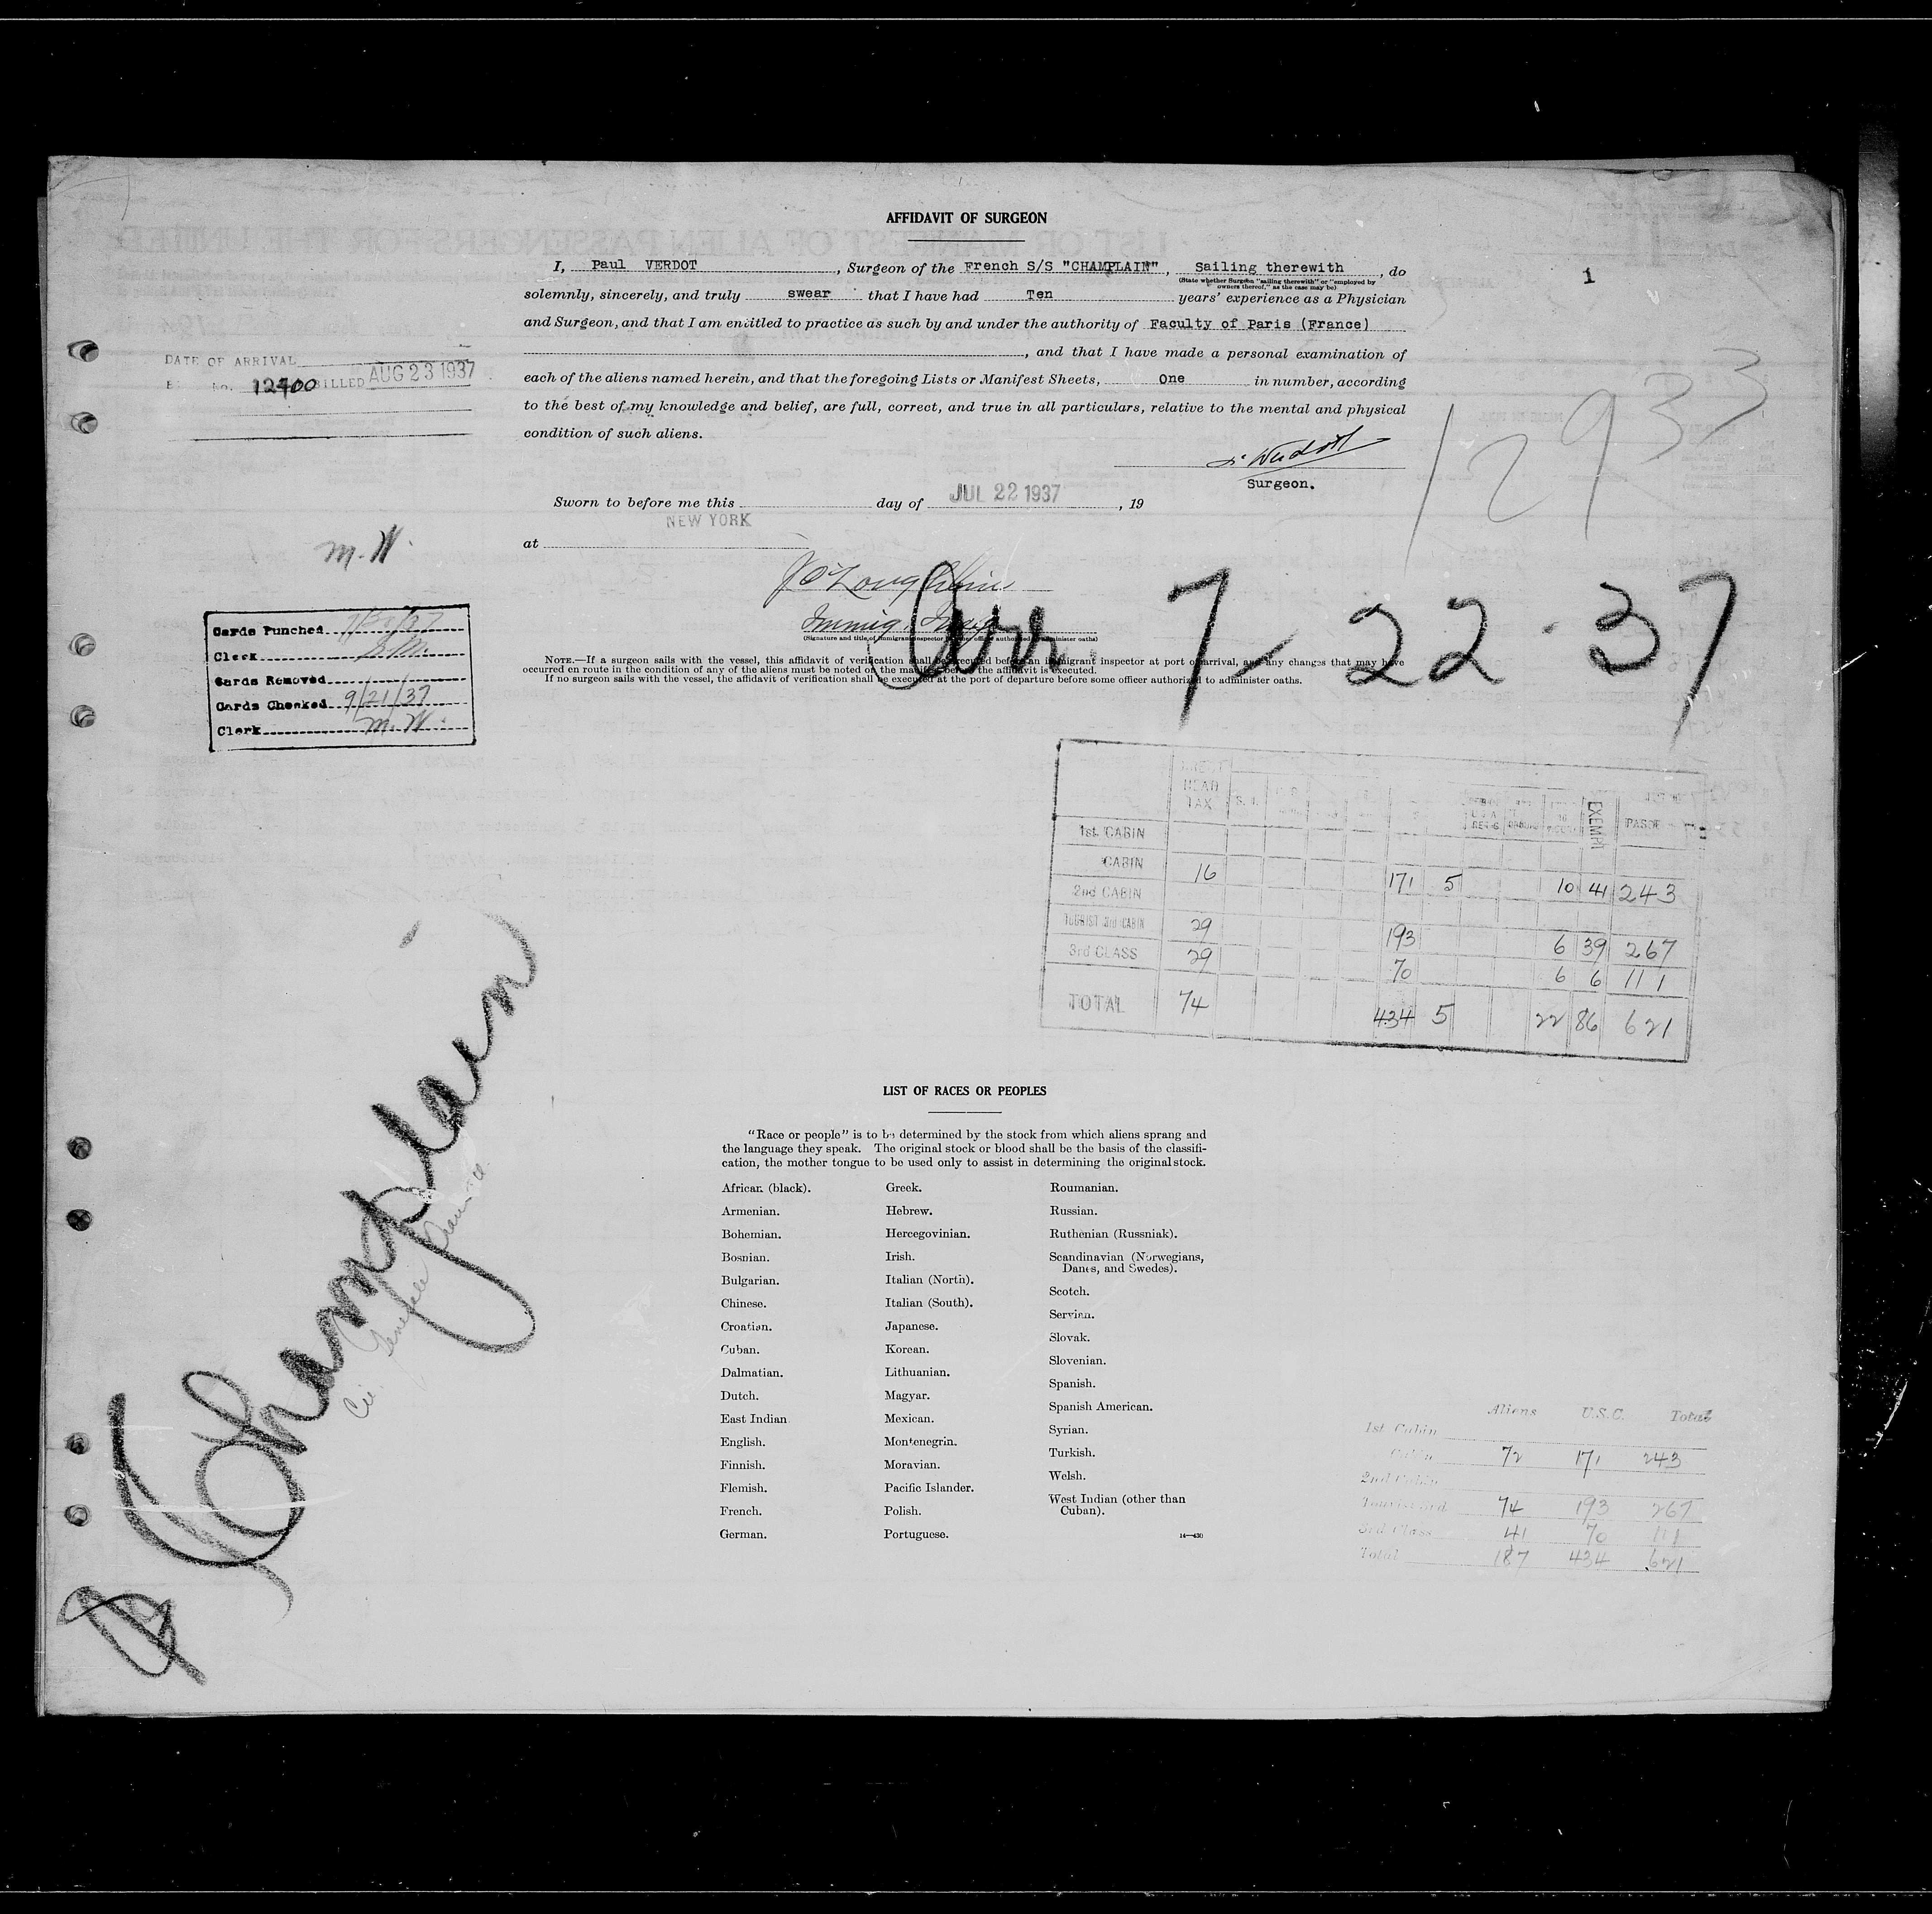 AFFIDAVIT OF SURGEON
I, Paul VERDOT, Surgeon of the French S/S "CHAMPLAIN", Sailing therewith, do
(State whether Surgeon "sailing therewith" or "employed by
owners thereof," as the case may be)
1
solemnly, sincerely, and truly swear that I have had Ten years' experience as a Physician
and Surgeon, and that I am entitled to practice as such by and under the authority of Faculty of Paris (France)
, and that I have made a personal examination of
each of the aliens named herein, and that the foregoing Lists or Manifest Sheets, One in number, according
to the best of my knowledge and belief, are full, correct, and true in all particulars, relative to the mental and physical
condition of such aliens.
Surgeon.
Sworn to before me this day of JUL 22 1937, 19
NEW YORK
at
DATE OF ARRIVAL
No. 12900 BILLED AUG 23 1937
12933
M.W.
Cards Punched
Clerk
Cards Removed
Cards Checked 9/21/37
Clerk M.W.
Arr. 7-22-37
NOTE.—If a surgeon sails with the vessel, this affidavit of verification shall be executed before an immigrant inspector at port of arrival, and any changes that may have
occurred en route in the condition of any of the aliens must be noted on the manifest before the affidavit is executed.
If no surgeon sails with the vessel, the affidavit of verification shall be executed at the port of departure before some officer authorized to administer oaths.
HEAD TAX EXEMPT
1st. CABIN
CABIN 16 171 5 10 41 243
2nd CABIN
TOURIST 3rd CABIN 29 193 6 39 267
3rd CLASS 29 70 6 6 111
TOTAL 74 434 5 22 86 621
Champlain
LIST OF RACES OR PEOPLES
"Race or people" is to be determined by the stock from which aliens sprang and
the language they speak. The original stock or blood shall be the basis of the classifi-
cation, the mother tongue to be used only to assist in determining the original stock.
African (black).
Armenian.
Bohemian.
Bosnian.
Bulgarian.
Chinese.
Croatian.
Cuban.
Dalmatian.
Dutch.
East Indian
English.
Finnish.
Flemish.
French.
German.
Greek.
Hebrew.
Hercegovinian.
Irish.
Italian (North).
Italian (South).
Japanese.
Korean.
Lithuanian.
Magyar.
Mexican.
Montenegrin.
Moravian.
Pacific Islander.
Polish.
Portuguese.
Roumanian.
Russian.
Ruthenian (Russniak).
Scandinavian (Norwegians,
Danes, and Swedes).
Scotch.
Servian.
Slovak.
Slovenian.
Spanish.
Spanish American.
Syrian.
Turkish.
Welsh.
West Indian (other than
Cuban).
14—430
Aliens U.S.C. Total
1st Cabin
Cabin 72 171 243
2nd Cabin
Tourist 3rd 74 193 267
3rd Class 41 70 111
Total 187 434 621